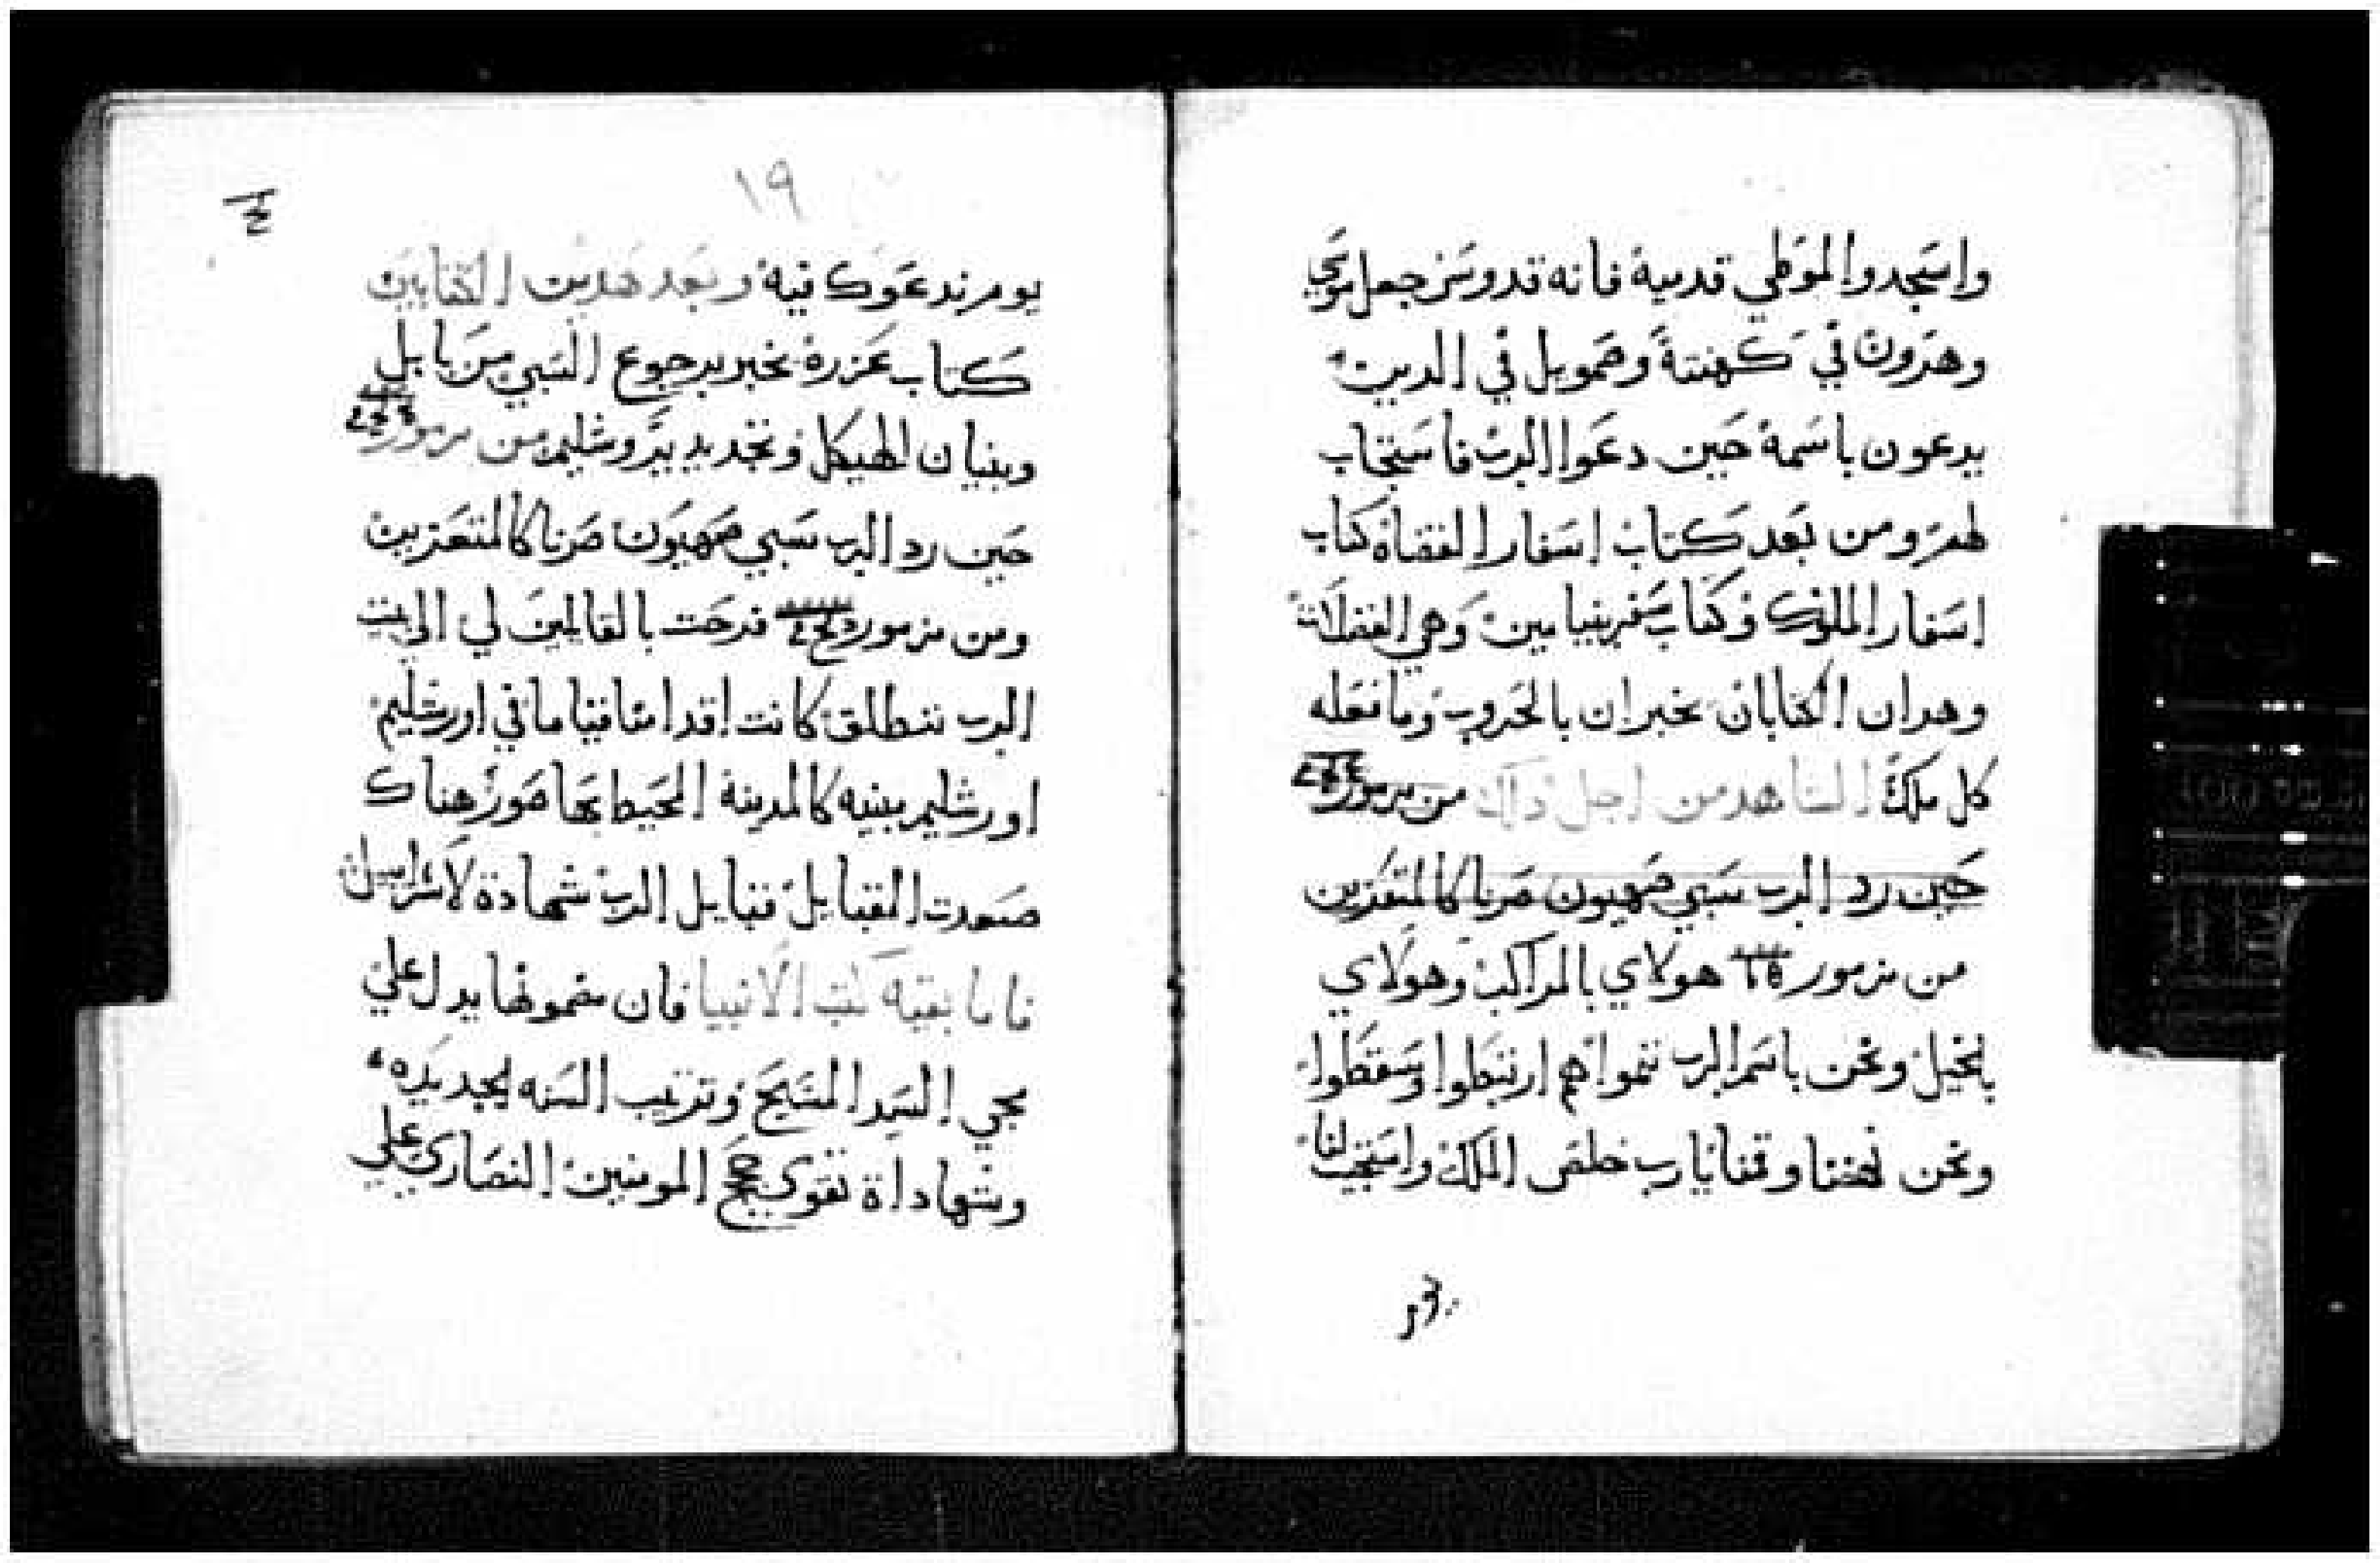 واسجدوا لموطي قدمية فانه قدوس جعل موسي
وهرون في كهنتة وصمويل في الدين
يدعون باسمة حين دعوا الرب فاستجاب
لهم ومن بعد كتاب اسفار القضاة كتاب
اسفار الملوك وكتاب سفر بنيامين وهي الفضلات
وهدان الكتابان يخبران بالحروب وما فعله
كل ملك الشاهد من اجل دالك من مزمور
حين رد الرب سبي صهيون صرنا كالمتعزين
من مزمور هولاي بالمراكب وهولاي
بالخيل ونحن باسم الرب ننموا هم ارتبطوا وسقطوا
ونحن نهضنا وقمنا يارب خلص الملك واستجب لنا
١٩
يوم ندعوك فية وبعد هدين الكتابين
كتاب عزرة يخبر برجوع السبي من بابل
وبنيان الهيكل وتجديد يروشليم من مزمور
حين رد الرب سبي صهيون صرنا كالمتعزين
ومن مزمور فرحت بالقالمين لي الي بيت
الرب ننطلق كانت اقدامنا قياما في اورشليم
اورشليم مبنيه كالمدينة المحيط بها صور هناك
صعدت القبايل قبايل الرب شهادة لاسراييل
فاما بقية كتب الانبيا فان مضمونها يدل علي
مجي السيد المسيح وترتيب السنه الجديده
وشهاداة تقوي حجج المومنين النصاري علي